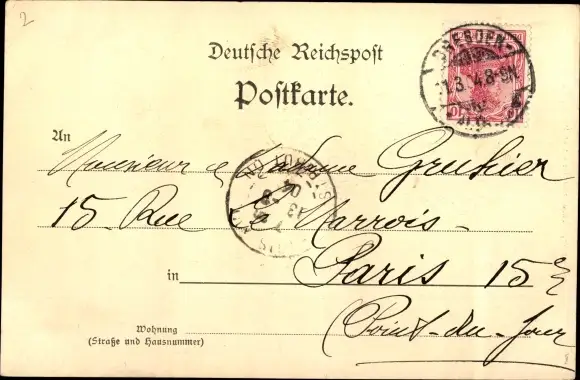 2
Deutsche Reichspost
Postkarte.
DRESDEN-
11.3. 4.8-9N.
An
Monsieur & Madame Gruhier
15 Rue Le Marrois
in Paris 15
(Point-du-Jour
Wohnung
(Straße und Hausnummer)